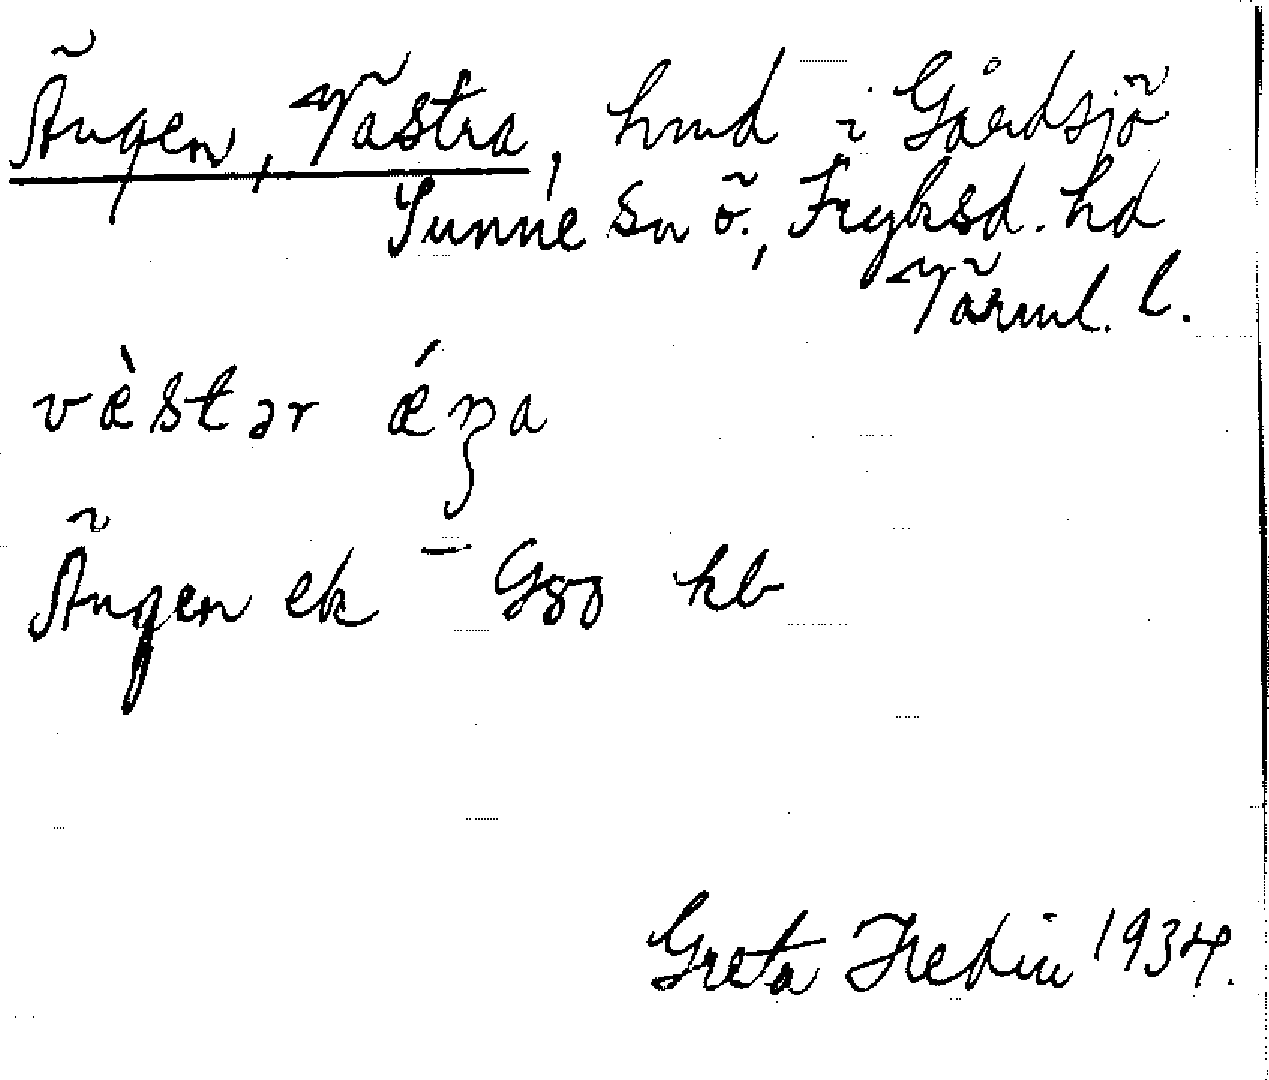 Ängen, Västra, hmd i Gårdsjö
Sunne sn ö., Fryksd. hd
Värml. l.
vèstər ǽŋa
Ängen ek – Gso kb
Greta Hedin 1934.